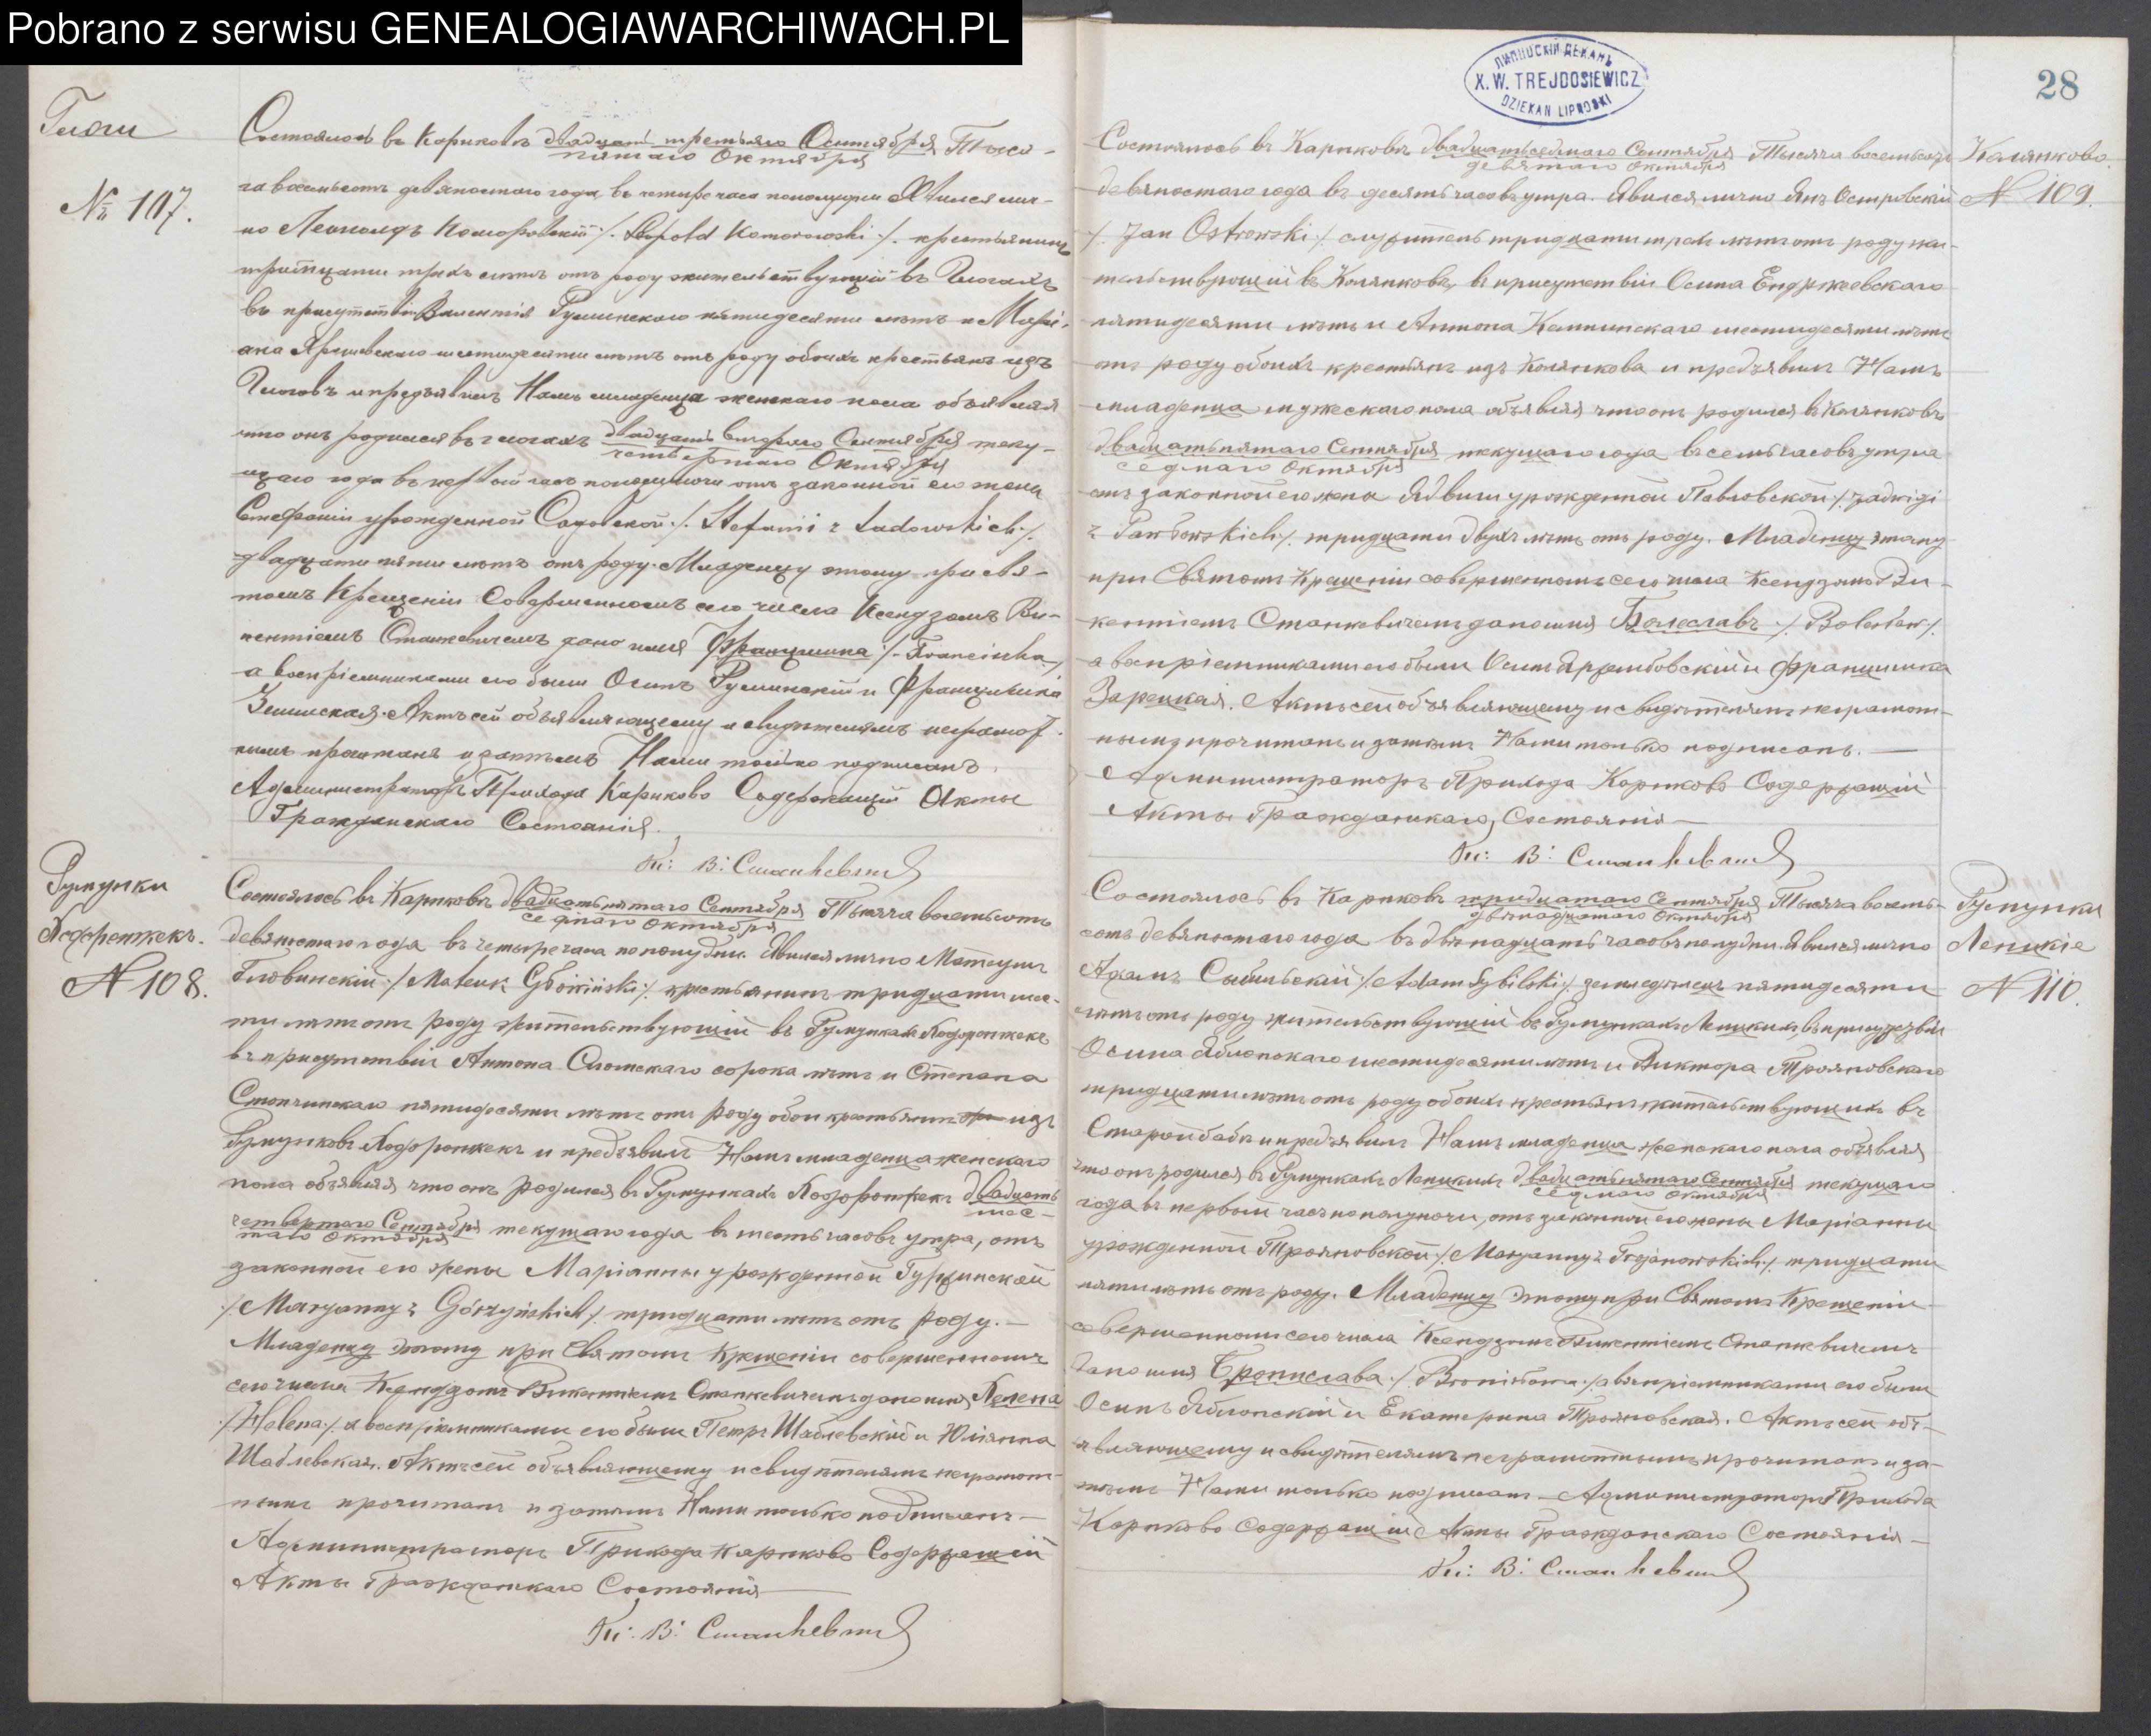 Pobrano z serwisu GENEALOGIAWARCHIWACH.PL
ЛИПНОСКІЙ ДЕКАНЪ
X. W. TREJDOSIEWICZ
DZIEKAN LIPNOSKI
28
Глоги
№ 107.
Состоялось въ Кариковѣ двадцать третьяго Сентября Тыся-
пятаго Октября
ча восемьсотъ девяностаго года, въ четыре часа пополудни Явился лич-
но Леопольдъ Коморовскій /. Leopold Komorowski /. крестьянинъ
тритцати трехъ лѣтъ отъ роду жительствующій въ Глогахъ
въ присутствіи Валентія Руминскаго пятидесяти лѣтъ и Марі-
ана шестидесяти лѣтъ отъ роду обоихъ крестьянъ изъ
Глоговъ и предъявилъ Намъ младенца женскаго пола объявляя
что онъ родился въ Глогахъ двадцать втораго Сентября теку-
четвертаго Октября
щаго года въ первый часъ пополуночи отъ законной его жены
Стефаніи урожденной Садовской /. Stefanii z Sadowskich /.
двадцати пяти лѣтъ отъ роду. Младенцу этому при Свя-
томъ Крещеніи Совершенномъ сего числа Ксендзомъ Ви-
кентіемъ Станкевичемъ дано имя Францишка /. Franciszka /.
а воспріемниками его были Осипъ Руминскій и Францишка
Зимлская. Актъ сей объявляющему и свидѣтелямъ неграмот-
нымъ прочитанъ и затѣмъ Нами только подписанъ.
Администраторъ Прихода Кариково Содержащій Акты
Гражданскаго Состоянія.
Кс: В: Станкевичъ
Румунки
№ 108.
Состоялось въ Кариковѣ двадцать пятаго Сентября Тысяча восемьсотъ
седмаго Октября
девяностаго года въ четыре часа по полудни. Явился лично Матеушъ
Гловинскій /. Mateusz Głowiński /. крестьянинъ тридцати шес-
ти лѣтъ отъ роду жительствующій въ Румункахъ
въ присутствіи Антона сорока лѣтъ и Степана
пятидесяти лѣтъ отъ роду обои крестьянъ изъ
Румунковъ и предъявилъ Намъ младенца женскаго
пола объявляя что онъ родился въ Румункахъ двадцать
шес-
четвертаго Сентября текущаго года въ шесть часовъ утра, отъ
таго Октября
законной его жены Маріанны урожденной Гуржинской
/. Maryanny z Górzyńskich /. тридцати лѣтъ отъ роду. —
Младенцу этому при Святомъ Крещеніи совершенномъ
сего числа Ксендзомъ Викентіемъ Станкевичемъ дано имя Хелена
/. Helena /. а воспріемниками его были Петръ Шаблевскій и Юліанна
Шаблевская. Актъ сей объявляющему и свидѣтелямъ неграмот-
нымъ прочитанъ и затѣмъ Нами только подписанъ —
Администраторъ Прихода Кариково Содержащій
Акты Гражданскаго Состоянія —
Кс: В: Станкевичъ
Колянково
№ 109.
Состоялось въ Кариковѣ двадцать седьмаго Сентября Тысяча восемьсотъ
девятаго Октября
девяностаго года въ десять часовъ утра. Явился лично Янъ Островскій
/. Jan Ostrowski /. служитель тридцати трехъ лѣтъ отъ роду жи-
тельствующій въ Колянковѣ, въ присутствіи Осипа Ендржеевскаго
пятидесяти лѣтъ и Антона шестидесяти лѣтъ
отъ роду обоихъ крестьянъ изъ Колянкова и предъявилъ Намъ
младенца мужескаго пола объявляя что онъ родился въ Колянковѣ
двадцать пятаго Сентября текущаго года въ семь часовъ утра
седмаго Октября
отъ законной его жены Ядвиги урожденной Павловской /. Jadwigi
z Pawłowskich /. тридцати двухъ лѣтъ отъ роду. Младенцу этому
при Святомъ Крещеніи совершенномъ сего числа Ксендзомъ Ви-
кентіемъ Станкевичемъ дано имя Болеславъ /. Bolesław /.
а воспріемниками его были Осипъ и Францишка
Зарецкая. Актъ сей объявляющему и свидѣтелямъ неграмот-
нымъ прочитанъ и затѣмъ Нами только подписанъ. —
Администраторъ Прихода Кариково Содержащій
Акты Гражданскаго Состоянія —
Кс: В: Станкевичъ
Румунки
№ 110.
Состоялось въ Кариковѣ тридцатаго Сентября Тысяча восемь-
двѣнадцатаго Октября
сотъ девяностаго года въ двѣнадцать часовъ полудни. Явился лично
Адамъ Сыбильскій /. Adam Sybilski /. земледѣлецъ пятидесяти
лѣтъ отъ роду жительствующій въ Румункахъ въ присутствіи
Осипа Яблонскаго шестидесяти лѣтъ и Виктора Трояновскаго
тридцати лѣтъ отъ роду обоихъ крестьянъ жительствующихъ въ
и предъявилъ Намъ младенца женскаго пола объявляя
что онъ родился въ Румункахъ двадцать пятаго Сентября текущаго
седмаго Октября
года въ первый часъ по полуночи, отъ законной его жены Маріанны
урожденной Трояновской /. Maryanny z Trojanowskich /. тридцати
пяти лѣтъ отъ роду. Младенцу этому при Святомъ Крещеніи
совершенномъ сего числа Ксендзомъ Викентіемъ Станкевичемъ
дано имя Бронислава /. Bronisława /. а воспріемниками его были
Осипъ Яблонскій и Екатерина Трояновская. Актъ сей объ-
являющему и свидѣтелямъ неграмотнымъ прочитанъ и за-
тѣмъ Нами только подписанъ — Администраторъ Прихода
Кариково Содержащій Акты Гражданскаго Состоянія —
Кс: В: Станкевичъ